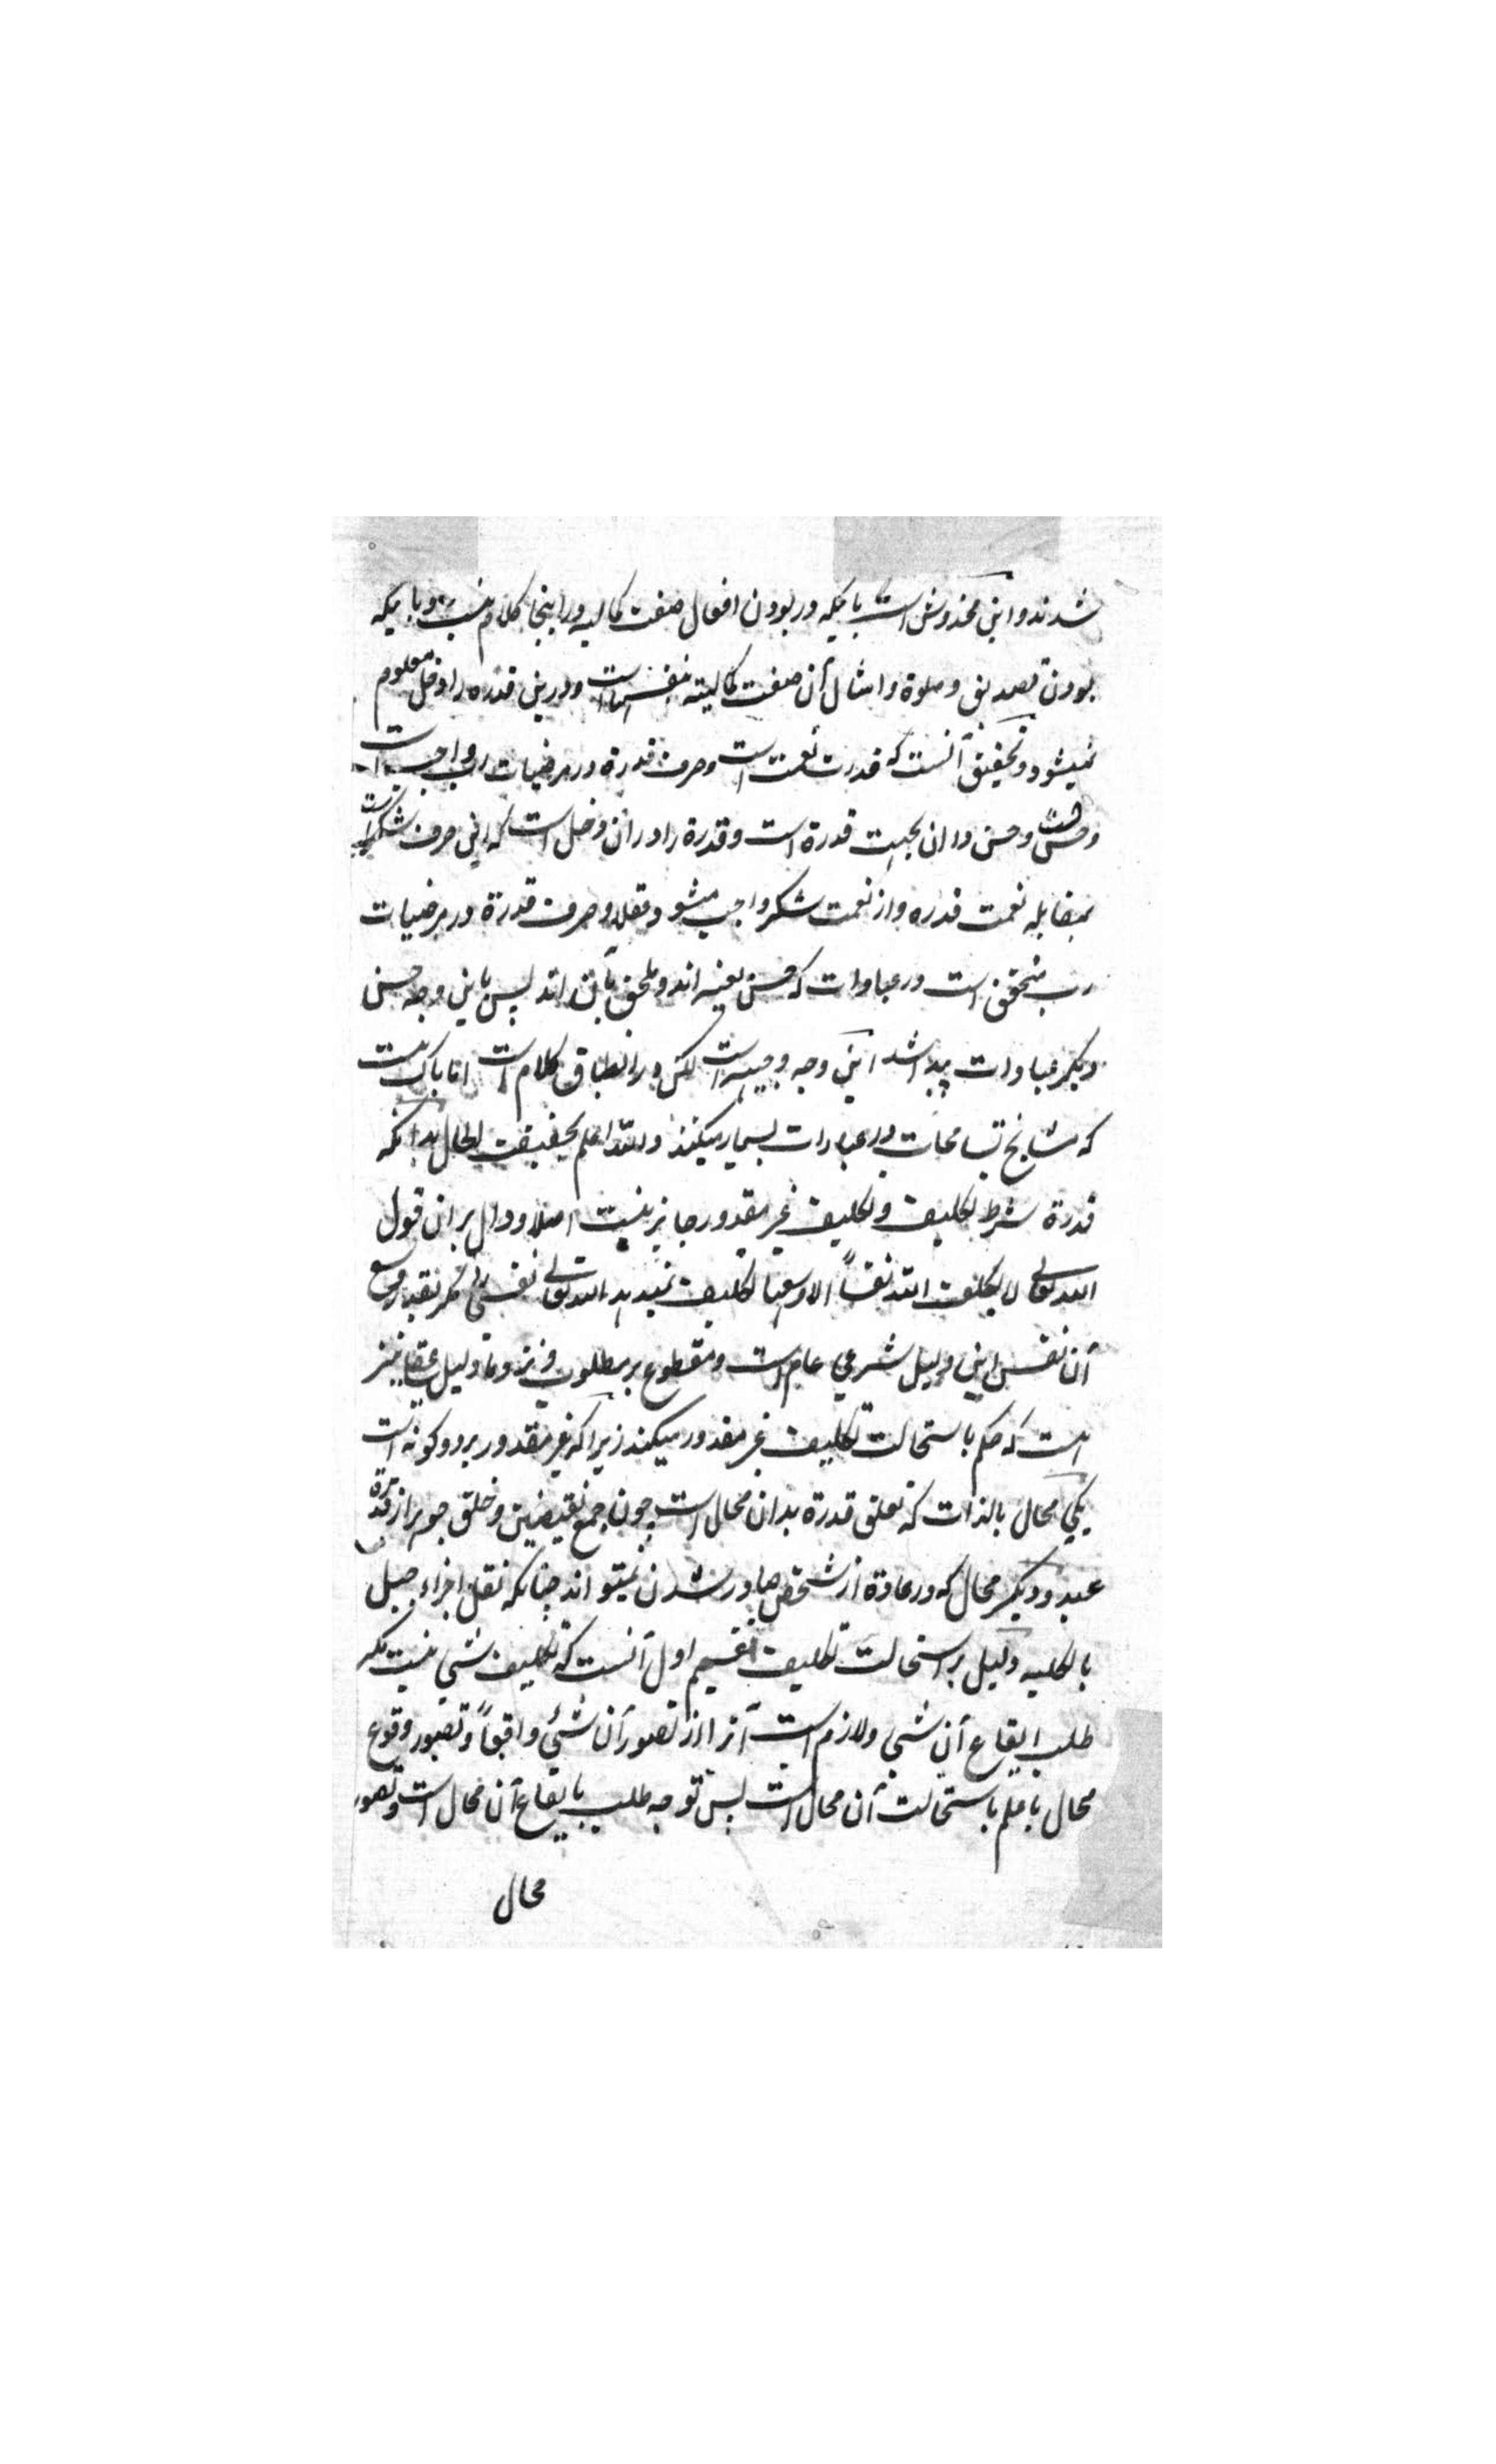 شدند و این مخدوش است باینکه در بودن افعال صفت کمالیه در اینجا کلام نیست و باینکه
بودن تصدیق و صلوة و امثال آن صفت کمالیة بنفسها است و درین قدره را دخل معلوم
نمیشود و تحقیق آنست که قدرت نعمت است و صرف قدرة در مرضیات رب واجب است
و حسن و حسن در ان بجهت قدرة است و قدرة را در ان دخل است که این صرف شکر است
بمقابله نعمت قدره و از نعمت شکر واجب میشود عقلا و صرف قدرة در مرضیات
رب متحقق است در عبادات که حسن لعینه اند و ملحق بآن اند پس باین وجه حسن
دیگر عبادات پیدا شد این وجه وجیه است لکن در انطباق کلام است اما باک نیست
که مشایخ تسامحات در عبارات بسیار میکنند والله اعلم بحقیقت الحال بدانکه
قدرة شرط تکلیف و تکلیف غیر مقدور جایز نیست اصلا و دال بر ان قول
الله تعالی لا یکلف الله نفساً الا وسعها تکلیف نمیدهد الله تعالی نفسی را مگر بقدر وسع
آن نفس این دلیل شرعی عام است و مقطوع بر مطلوب و نزد ما دلیل عقلی نیز
است که حکم باستحالت تکلیف غیر مقدور میکند زیرا که غیر مقدور بر دو کونه است
یکی محال بالذات که تعلق قدرة بدان محال است چون جمع نقیضین و خلق جوهر از قدرة
عبد و دیگر محال که در عادة از شخص صادر شدن نمیتواند چنانکه نقل اجزاء جبل
بالکلیه دلیل بر استحالت تکلیف قسم اول آنست که تکلیف شی نیست مگر
طلب ایقاع آن شی و لازم است آنرا از تصور آن شئی واقعاً و تصور وقوع
محال با علم باستحالت آن محال است پس توجه طلب بایقاع آن محال است و تصور
محال